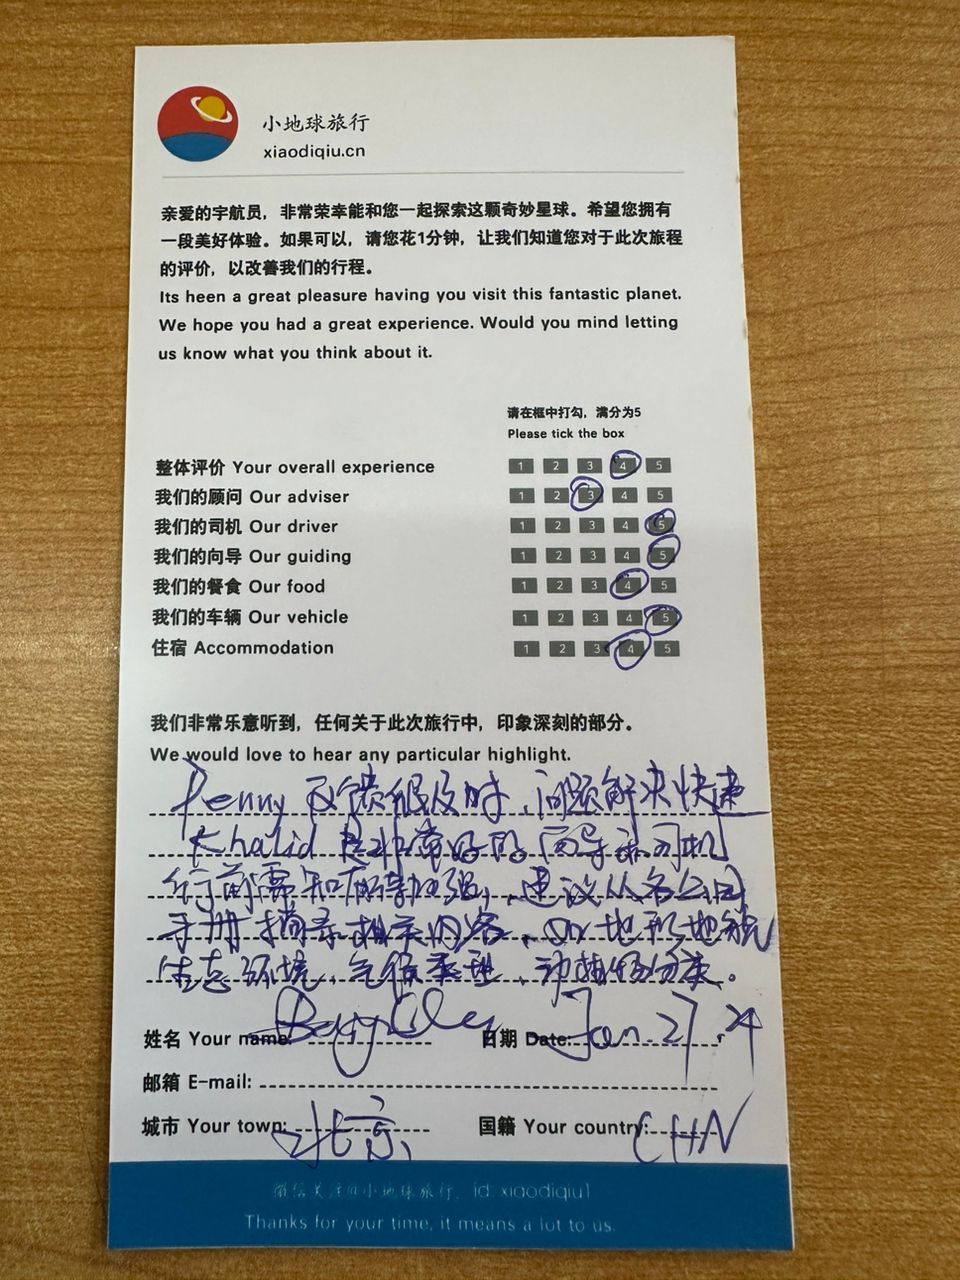 小地球旅行
xiaodiqiu.cn
亲爱的宇航员，非常荣幸能和您一起探索这颗奇妙星球。希望您拥有
一段美好体验。如果可以，请您花1分钟，让我们知道您对于此次旅程
的评价，以改善我们的行程。
Its heen a great pleasure having you visit this fantastic planet.
We hope you had a great experience. Would you mind letting
us know what you think about it.
请在框中打勾，满分为5
Please tick the box
整体评价 Your overall experience 1 2 3 4 5
我们的顾问 Our adviser 1 2 3 4 5
我们的司机 Our driver 1 2 3 4 5
我们的向导 Our guiding 1 2 3 4 5
我们的餐食 Our food 1 2 3 4 5
我们的车辆 Our vehicle 1 2 3 4 5
住宿 Accommodation 1 2 3 4 5
我们非常乐意听到，任何关于此次旅行中，印象深刻的部分。
We would love to hear any particular highlight.
Penny 反馈很及时、问题解决快速
Khalid 是非常好的向导和司机
行前需知有待加强，建议从各公司
手册摘录相关内容、如地形地貌
生态环境、气候类型、动植物分类。
姓名 Your name: 日期 Date: Jan. 27. 24
邮箱 E-mail:
城市 Your town: 北京 国籍 Your country: CHN
微信关注@小地球旅行，id: xiaodiqiu1
Thanks for your time, it means a lot to us.